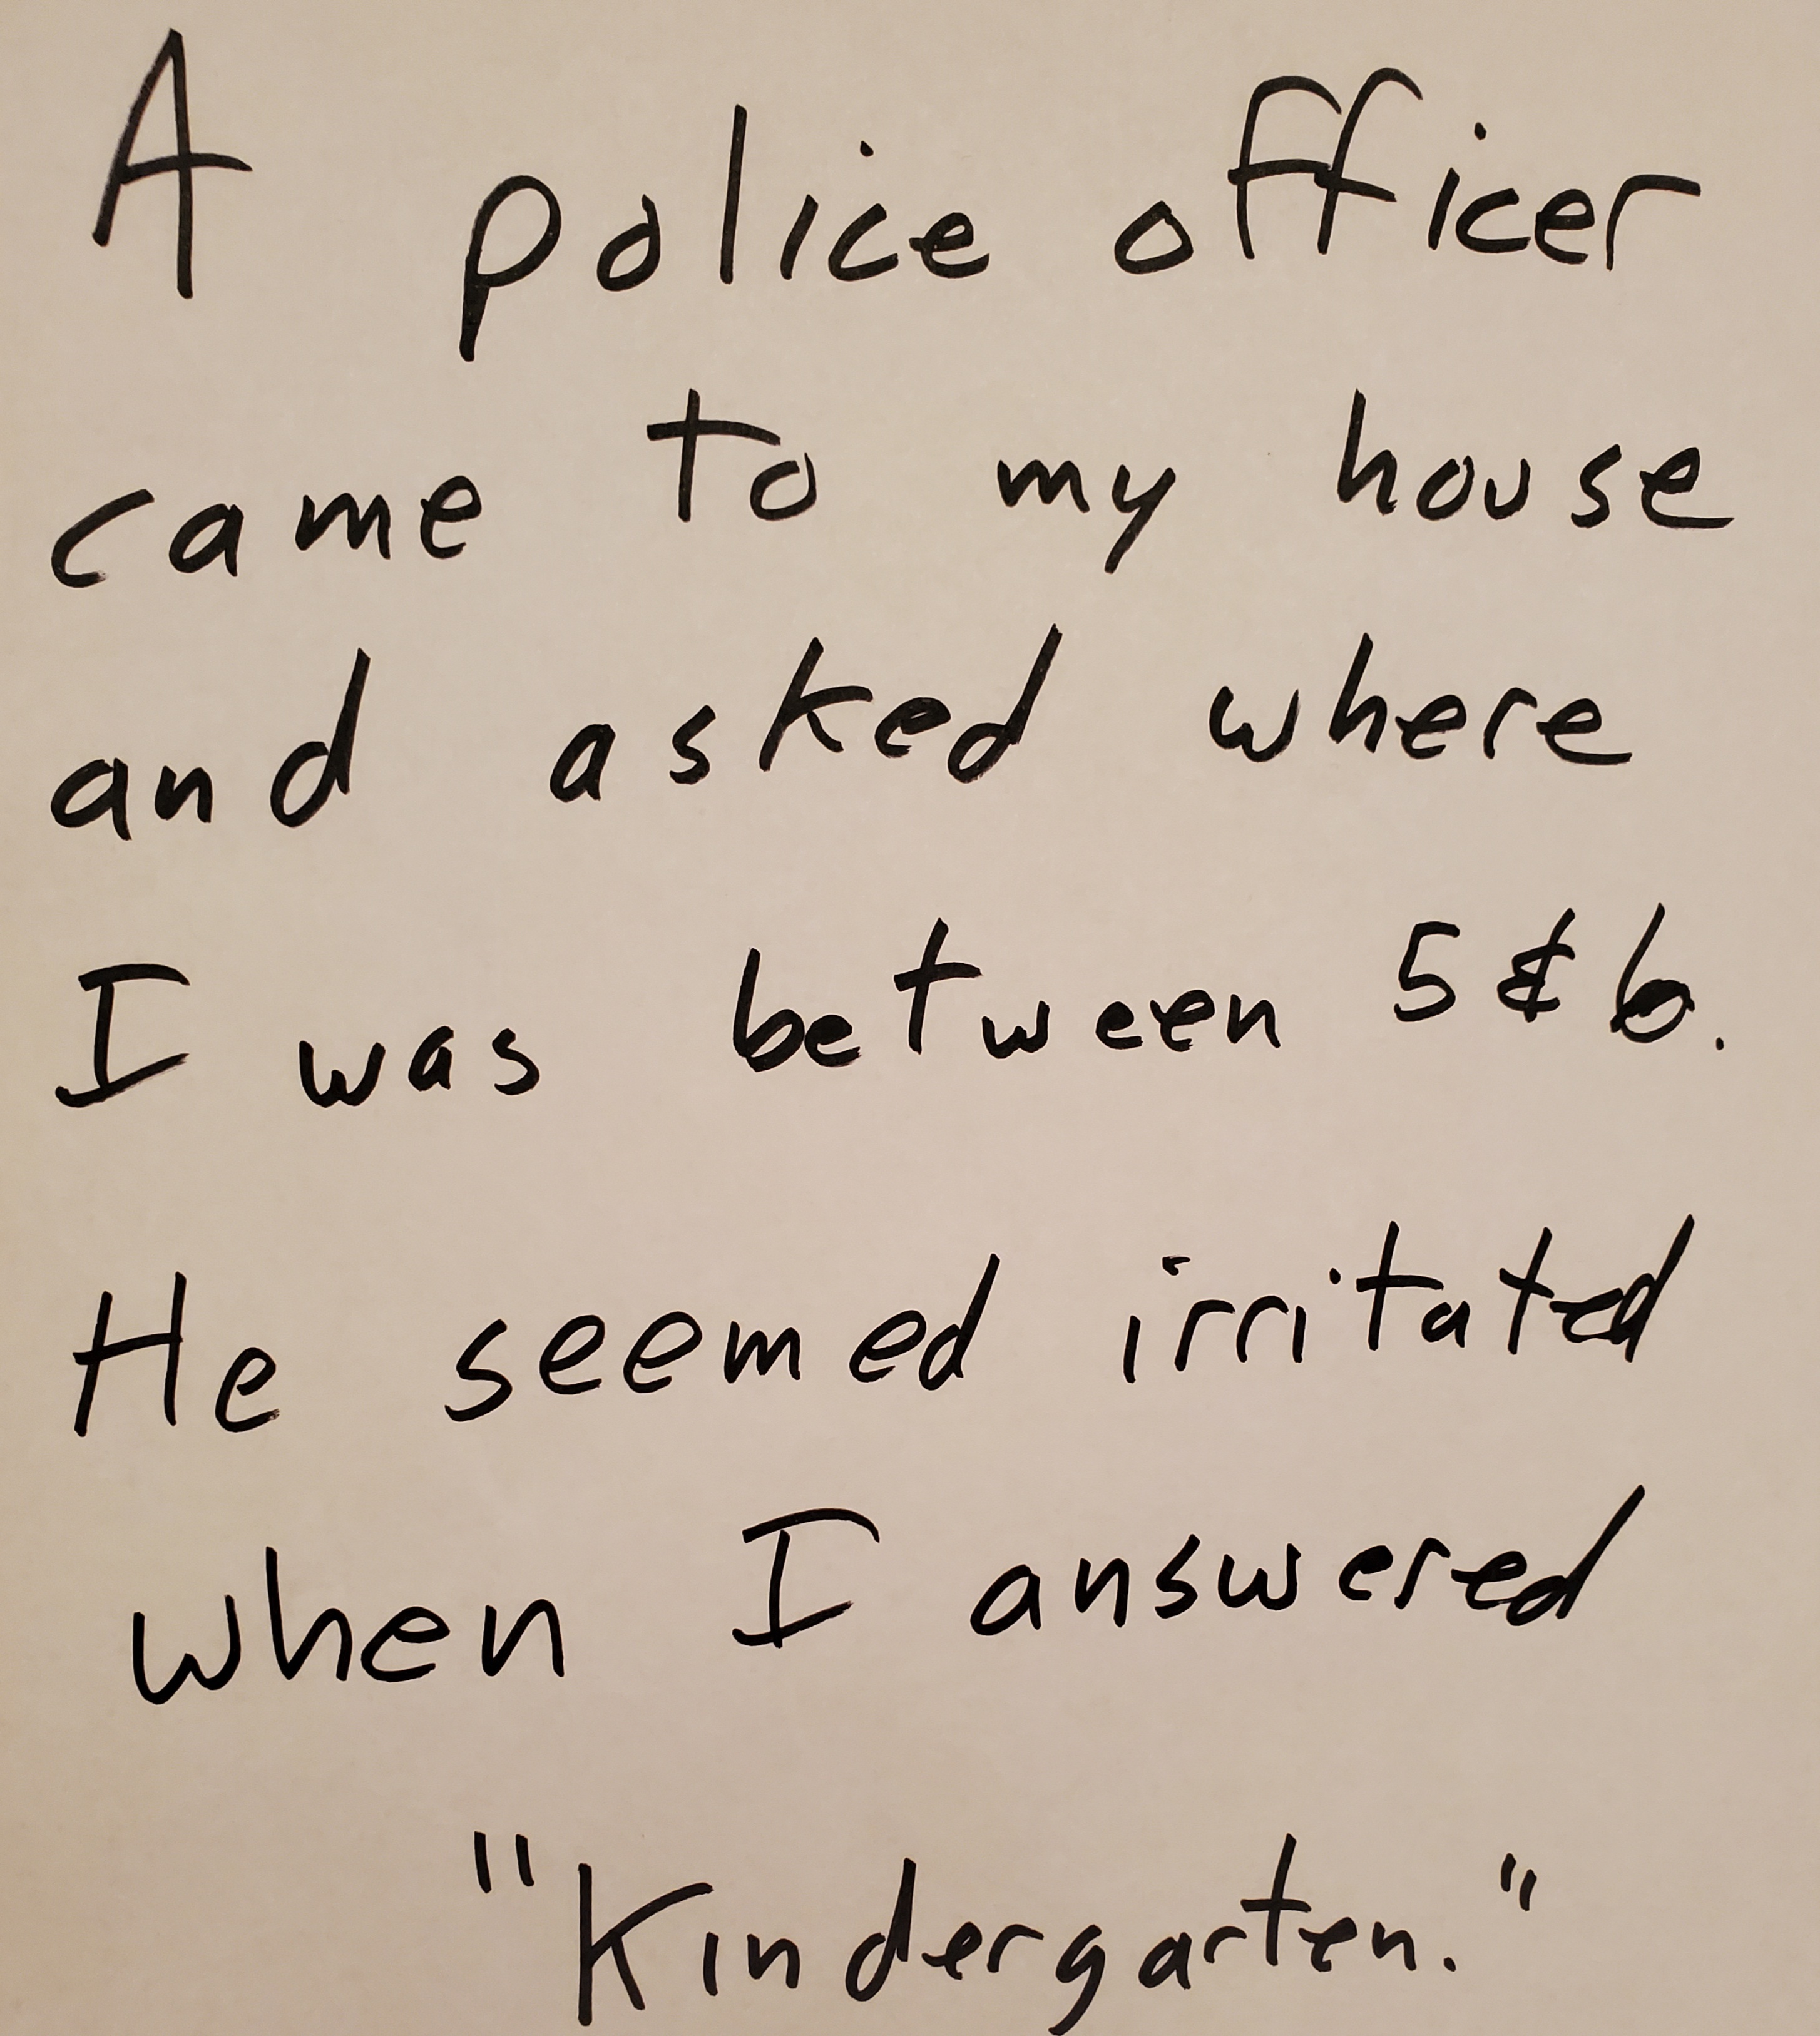 A police officer
came to my house
and asked where
I was between 5 & 6.
He seemed irritated
when I answered
"Kindergarten."